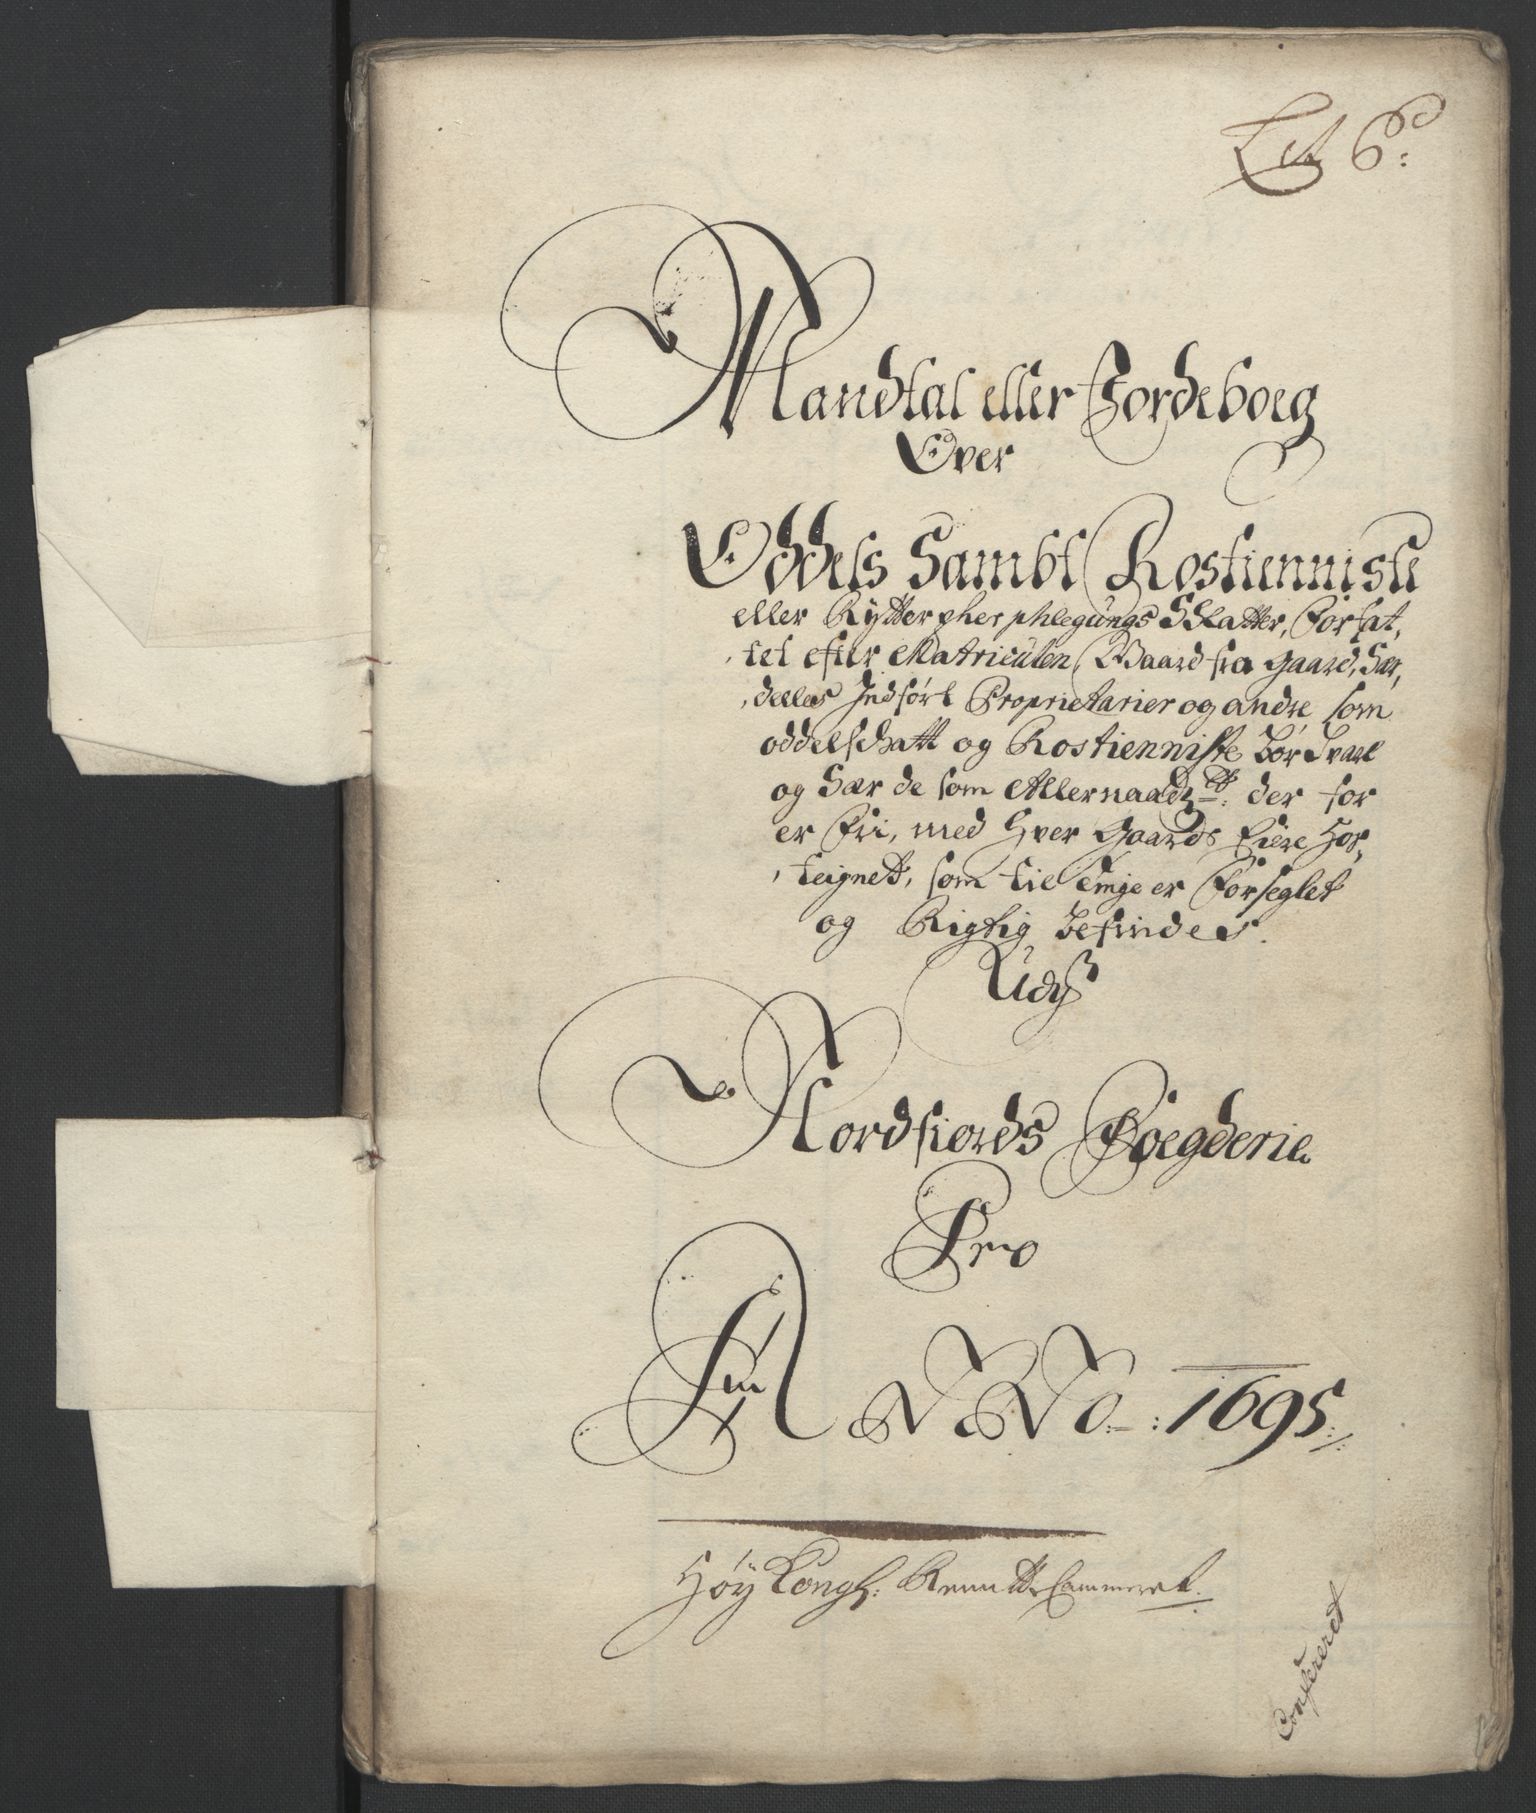 Lit 6:
Mandtal eller Jordeboeg
Over
Oddels Sambt Rostienniste
eller Rytter phlegungs Skatter, Forfat,
,tet efter Matriculen, Gaard fra gaard, Sær,
,delles Indført Proprietarier og andre som
oddelschatt og Rostienniste bør Svare
og Sær de som Allernaadgst: der for
er Fri, med Hver Gaards Eiere Hos,
,teignet, som til Enge er Forseglet
og Rigtig befindes.
Udj
Nordfiords Foegderie
Pro
ANNO: 1695
Høy Kongl: Rentte Cammeret.
Confereret